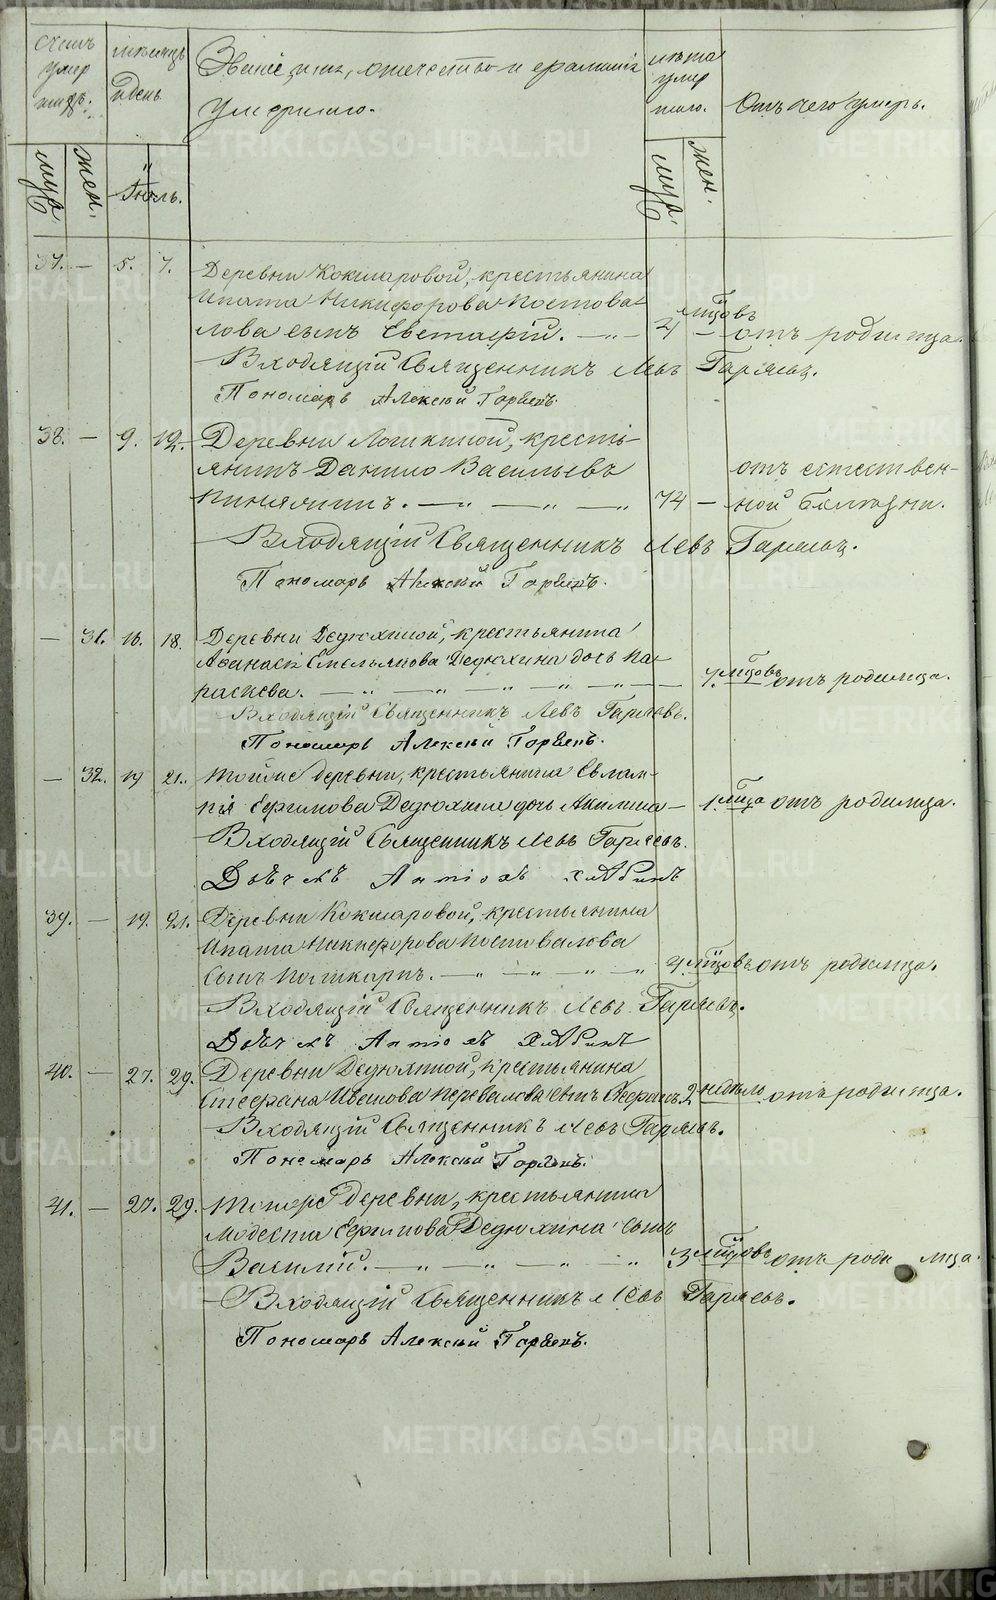 Счетъ умер шихъ.
муж. жен.
мѣсяцъ и день
Іюль.
Званіе, имя, отчество и фамилія
умершаго.
лѣта умер шаго.
муж. жен.
Отъ чего умеръ.
37. — 5. 7. Деревни Кокшаровой, крестьянина
Ипата Никифорова Постова
лова сынъ Евстафій. — „ — 4 мѣсяцовъ — отъ родимца.
Входящій Священникъ Левъ Гаряевъ.
Пономарь Алексѣй Горбенъ.
38. — 9. 12. Деревни крестьянинъ
янинъ Данило Васильевъ
— „ — „ — „ 74 — отъ естествен-
ной болѣзни.
Входящій Священникъ Левъ Гаряевъ.
Пономарь Алексѣй Горбенъ.
— 31. 16. 18. Деревни Дедюхиной, крестьянина
Афанасія Емельянова Дедюхина дочь Па-
раскева. — „ — „ — „ — „ — 7. мѣсяцовъ отъ родимца.
Входящій Священникъ Левъ Гаряевъ.
Пономарь Алексѣй Горбенъ.
— 32. 19 21. Тойже деревни, крестьянина Евлам-
пія Ефимова Дедюхина дочь Акилина — 1. мѣсяца отъ родимца.
Входящій Священникъ Левъ Гаряевъ.
Дьячекъ Антіохъ
39. — 19. 21. Деревни Кокшаровой, крестьянина
Ипата Никифорова Постовалова
сынъ Поликарпъ. — „ — „ — „ — „ 4 мѣсяцовъ отъ родимца.
Входящій Священникъ Левъ Гаряевъ.
Дьячекъ Антіохъ
40. — 27. 29. Деревни Дедюхиной, крестьянина
Стефана Иванова Перевалова сынъ 2 недѣль отъ родимца.
Входящій Священникъ Левъ Гаряевъ.
Пономарь Алексѣй Горбенъ.
41. — 27. 29. Тойже деревни, крестьянина
Модеста Ефимова Дедюхина сынъ
Василій. — „ — „ — „ — „ 3 мѣсяцовъ отъ родимца.
Входящій Священникъ Левъ Гаряевъ.
Пономарь Алексѣй Горбенъ.
METRIKI.GASO-URAL.RU